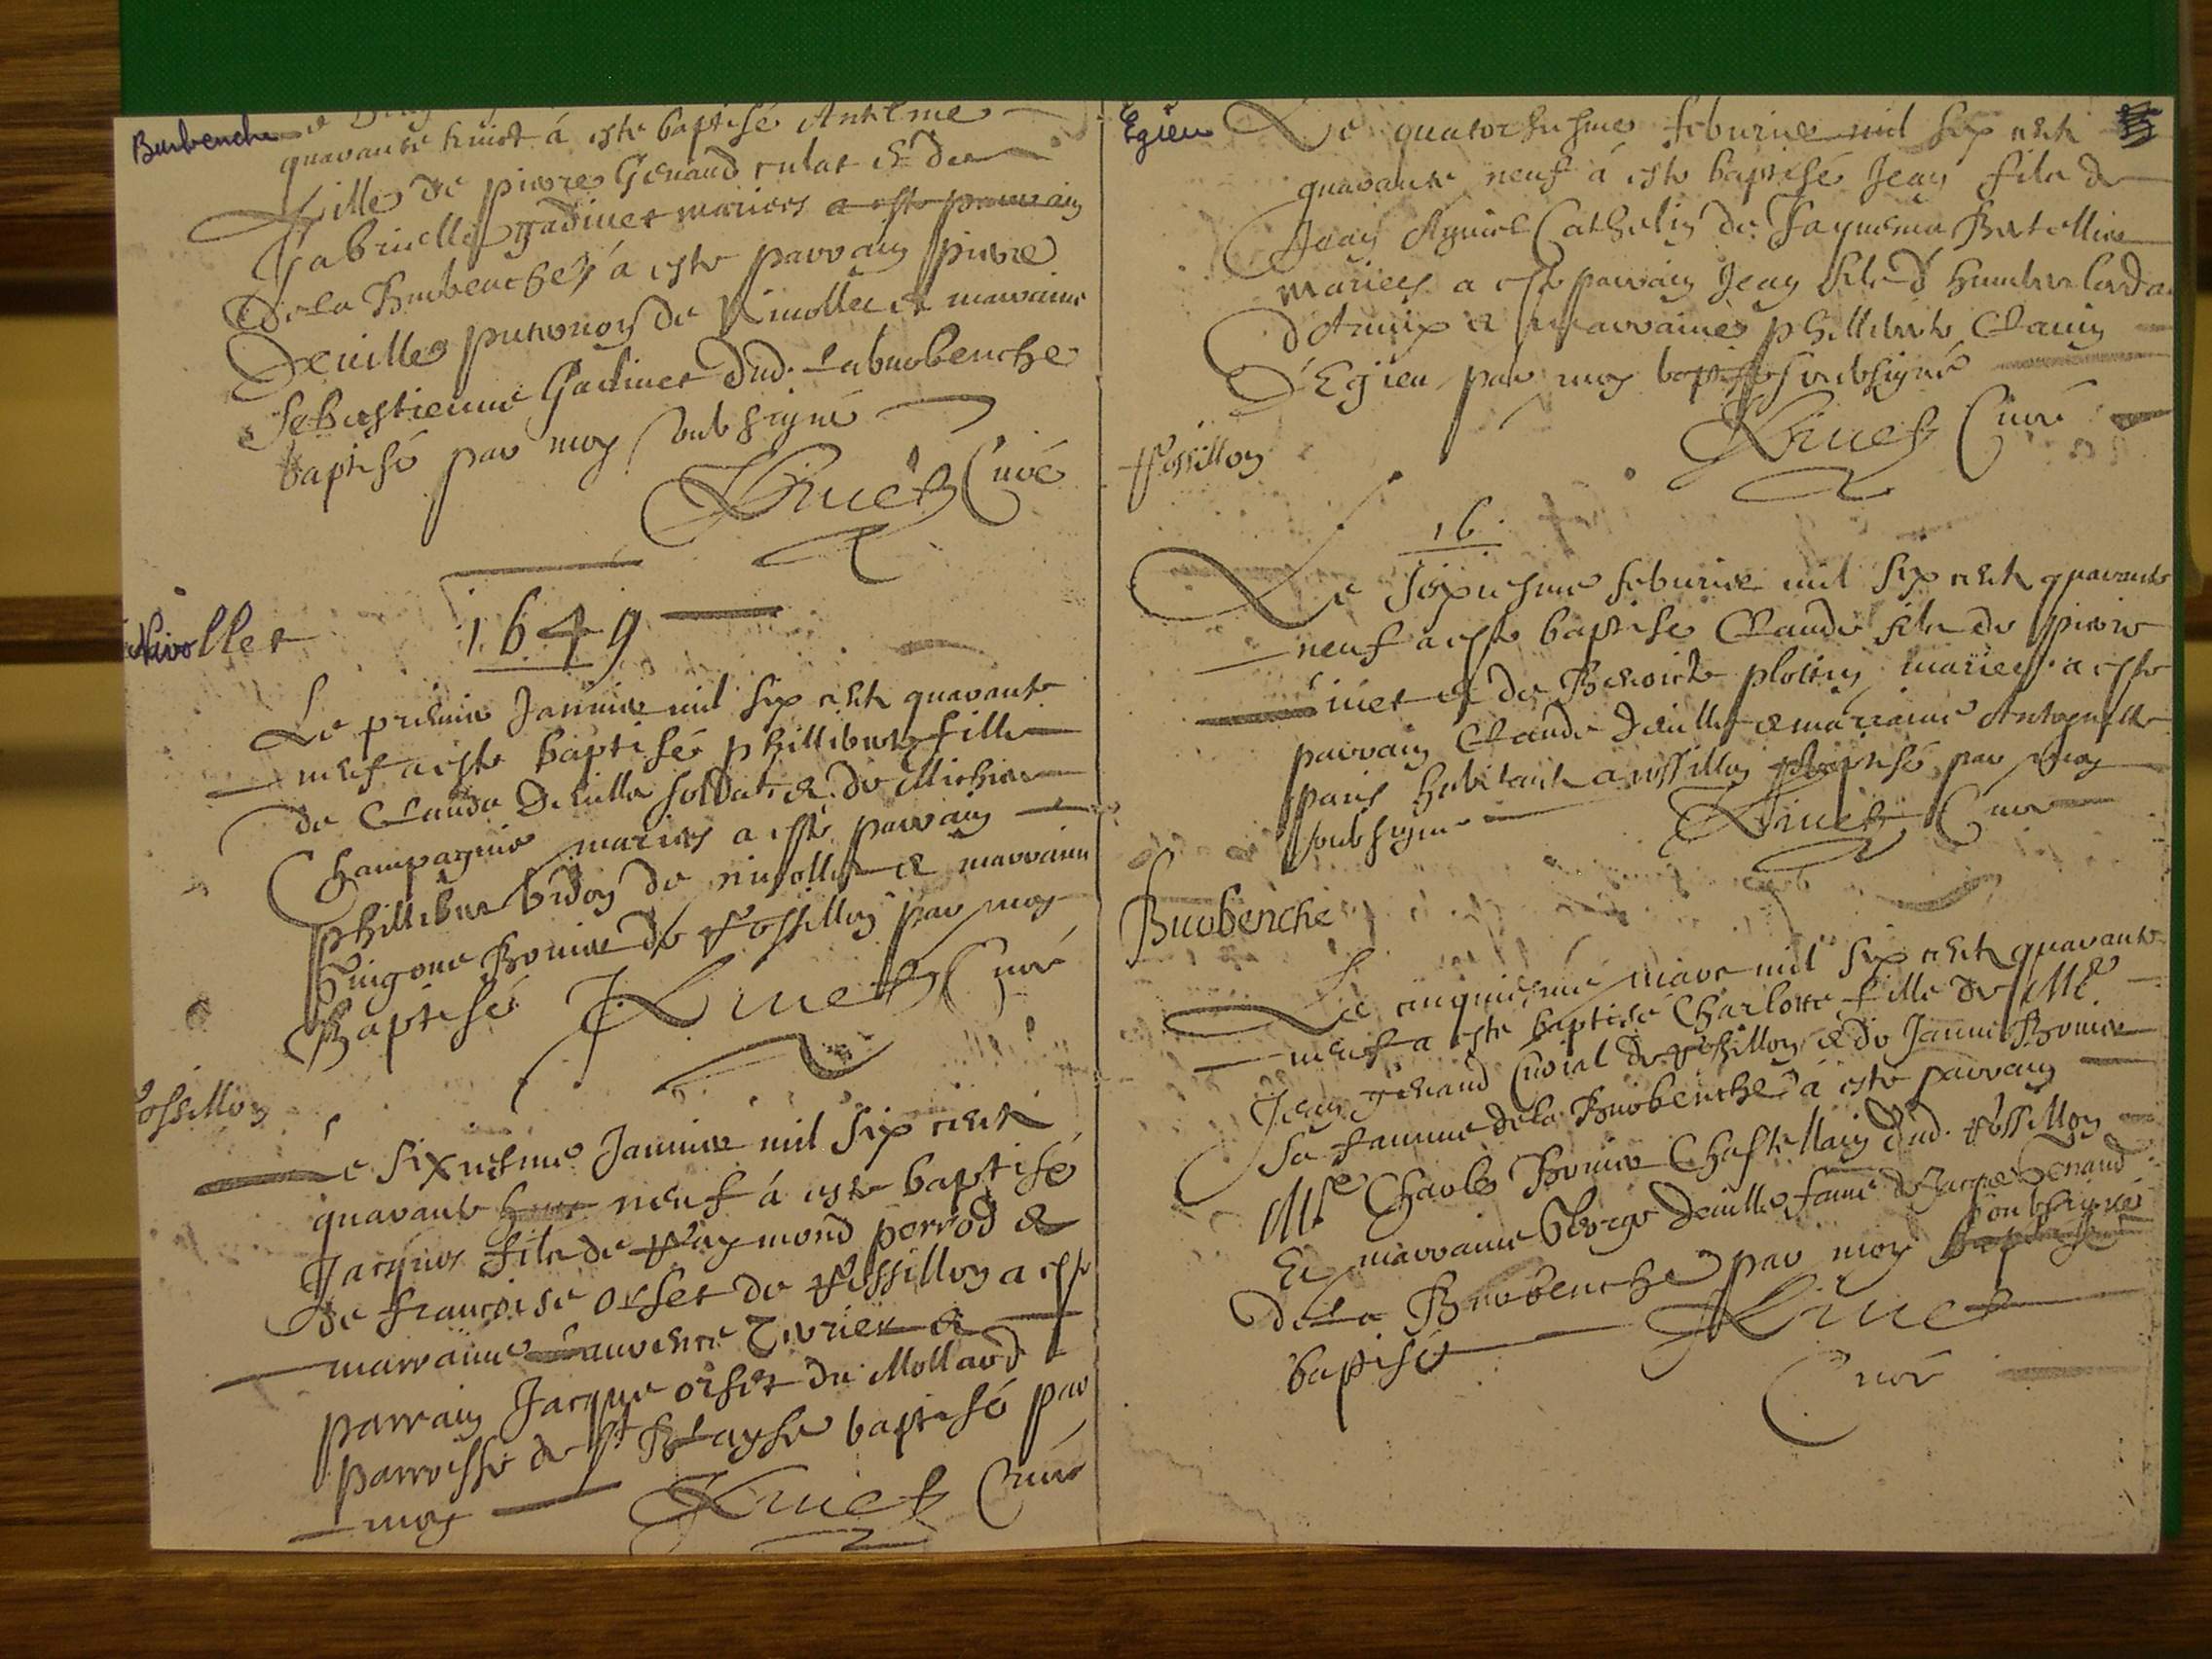 Burbenche
quarante huict à este baptisé Antelme
fille de pierre Genand et de
Gabrielle gadiner mariers a este parrain
De la Burbenche à este parrain pierre
Deuille de Niuollet et marraine
Sebastienne Gadinet dud. laburbenche
baptisé par moy soubsigné
Curé
1649
Nivollet
Le premier Januier mil six cent quarante
neuf a este baptisé phillibert fille
de Claude Deuille soldat & de Michiere
Champagnie mariés a esté parrain
phillibert bidon de niuollet & marraine
guigone Bouuier de Rossillon par moy
Baptisé Curé
Rossillon
Le sixiesme Januier mil six cent
quarante huict neuf à este baptisé
Jacques filz de Raymond perrod &
de francoise orset de Rossillon a este
marraine Laurence Tivrier &
parrain Jacque orset du Mollard
parroisse de St Blayse baptisé par
moy Curé
Egieu
Le quatorsiesme feburier mil six cent
quarante neuf à este baptisé Jean filz de
Jean Cathelin de Jaquema Bertellier
mariees a este parrain Jean filz d'humber
d'Armix et marraine phillibert Clauin
D'Egieu par moy baptisé soubsigné
Curé
Rossillon
16
Le sixiesme feburier mil six cent quarante
neuf a este baptisé Claude filz de pierre
iuet & de Benoiste plottin mariees a este
parrain Claude Deuille & marraine Anthoynette
paris habitant a rossillon baptisé par moy
soubsigné Curé
Burbenche
Le cinquiesme mars mil six cent quarante
neuf a este baptisé Charlotte fille de Me
Jean genand Curial de Rossillon & de Janne Bouuier
sa femme de la Burbenche à este parrain
Me Charles Bouuier Chastellain dud. Rossillon
Et marraine George Deuille fame de Jacque Genand
de la Burbenche par moy baptisé soubsigné
baptisé
Curé